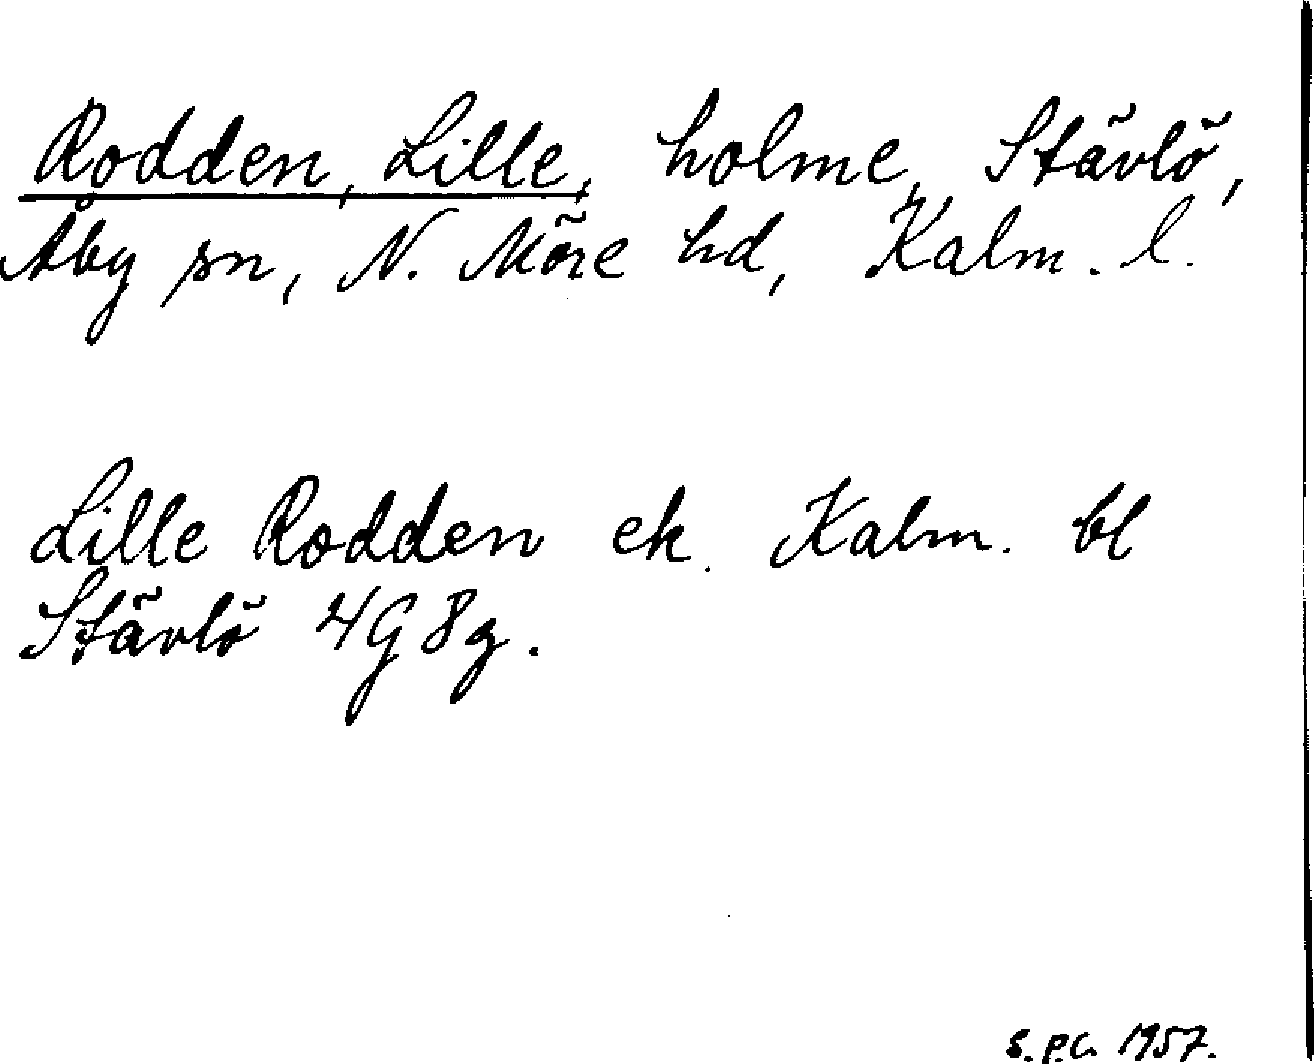 Rodden, Lille, holme, Stävlö,
Åby sn, N. Möre hd, Kalm. l.
Lille Rodden ek. Kalm. bl
Stävlö 4G 8g.
1957.